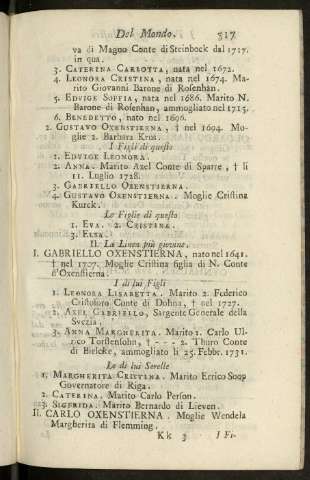 Del Mondo. 517
va di Magno Conte di Steinbock dal 1717.
in qua.
3. CATERINA CARLOTTA, nata nel 1672.
4. LEONORA CRISTINA, nata nel 1674. Ma-
rito Giovanni Barone di Rosenhan.
5. EDVIGE SOFFIA, nata nel 1686. Marito N.
Barone di Rosenhan, ammogliato nel 1715.
6. BENEDETTO, nato nel 1696.
2. GUSTAVO OXENSTIERNA, † nel 1694. Mo-
glie 2. Barbara Krus.
I Figli di questo
1. EDVIGE LEONORA.
2. ANNA. Marito Axel Conte di Sparre, † li
11. Luglio 1728.
3. GABRIELLO OXENSTIERNA.
4. GUSTAVO OXENSTIERNA. Moglie Cristina
Kurck.
Le Figlie di questo
1. EVA. 2. CRISTINA.
3. ELSA.
II. La Linea più giovane.
I. GABRIELLO OXENSTIERNA, nato nel 1641.
† nel 1707. Moglie Cristina figlia di N. Conte
d'Oxenstierna.
I di lui Figli
1. LEONORA LISABETTA. Marito 2. Federico
Cristoforo Conte di Dohna, † nel 1727.
2. AXEL GABRIELLO, Sargente Generale della
Svezia.
3. ANNA MARGHERITA. Marito 1. Carlo Ul-
rico Torstensohn, † - - - 2. Thuro Conte
di Bielcke, ammogliato li 25. Febbr. 1731.
Le di lui Sorelle
1. MARGHERITA CRISTINA. Marito Errico Soop
Governatore di Riga.
2. CATERINA. Marito Carlo Person.
3. SIGFRIDA. Marito Bernardo di Lieven.
II. CARLO OXENSTIERNA. Moglie Wendela
Margherita di Flemming.
Kk 3 I Fi-